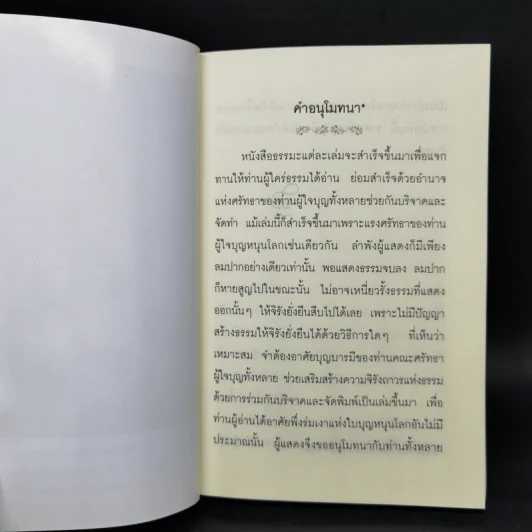 คำอนุโมทนา*
หนังสือธรรมะแต่ละเล่มจะสำเร็จขึ้นมาเพื่อแจก
ทานให้ท่านผู้ใคร่ธรรมได้อ่าน ย่อมสำเร็จด้วยอำนาจ
แห่งศรัทธาของท่านผู้ใจบุญทั้งหลายช่วยกันบริจาคและ
จัดทำ แม้เล่มนี้ก็สำเร็จขึ้นมาเพราะแรงศรัทธาของท่าน
ผู้ใจบุญหนุนโลกเช่นเดียวกัน ลำพังผู้แสดงก็มีเพียง
ลมปากอย่างเดียวเท่านั้น พอแสดงธรรมจบลง ลมปาก
ก็หายสูญไปในขณะนั้น ไม่อาจเหนี่ยวรั้งธรรมที่แสดง
ออกนั้นๆ ให้จิรังยั่งยืนสืบไปได้เลย เพราะไม่มีปัญญา
สร้างธรรมให้จิรังยั่งยืนได้ด้วยวิธีการใดๆ ที่เห็นว่า
เหมาะสม จำต้องอาศัยบุญบารมีของท่านคณะศรัทธา
ผู้ใจบุญทั้งหลาย ช่วยเสริมสร้างความจิรังถาวรแห่งธรรม
ด้วยการร่วมกันบริจาคและจัดพิมพ์เป็นเล่มขึ้นมา เพื่อ
ท่านผู้อ่านได้อาศัยพึ่งร่มเงาแห่งใบบุญหนุนโลกอันไม่มี
ประมาณนั้น ผู้แสดงจึงขออนุโมทนากับท่านทั้งหลาย